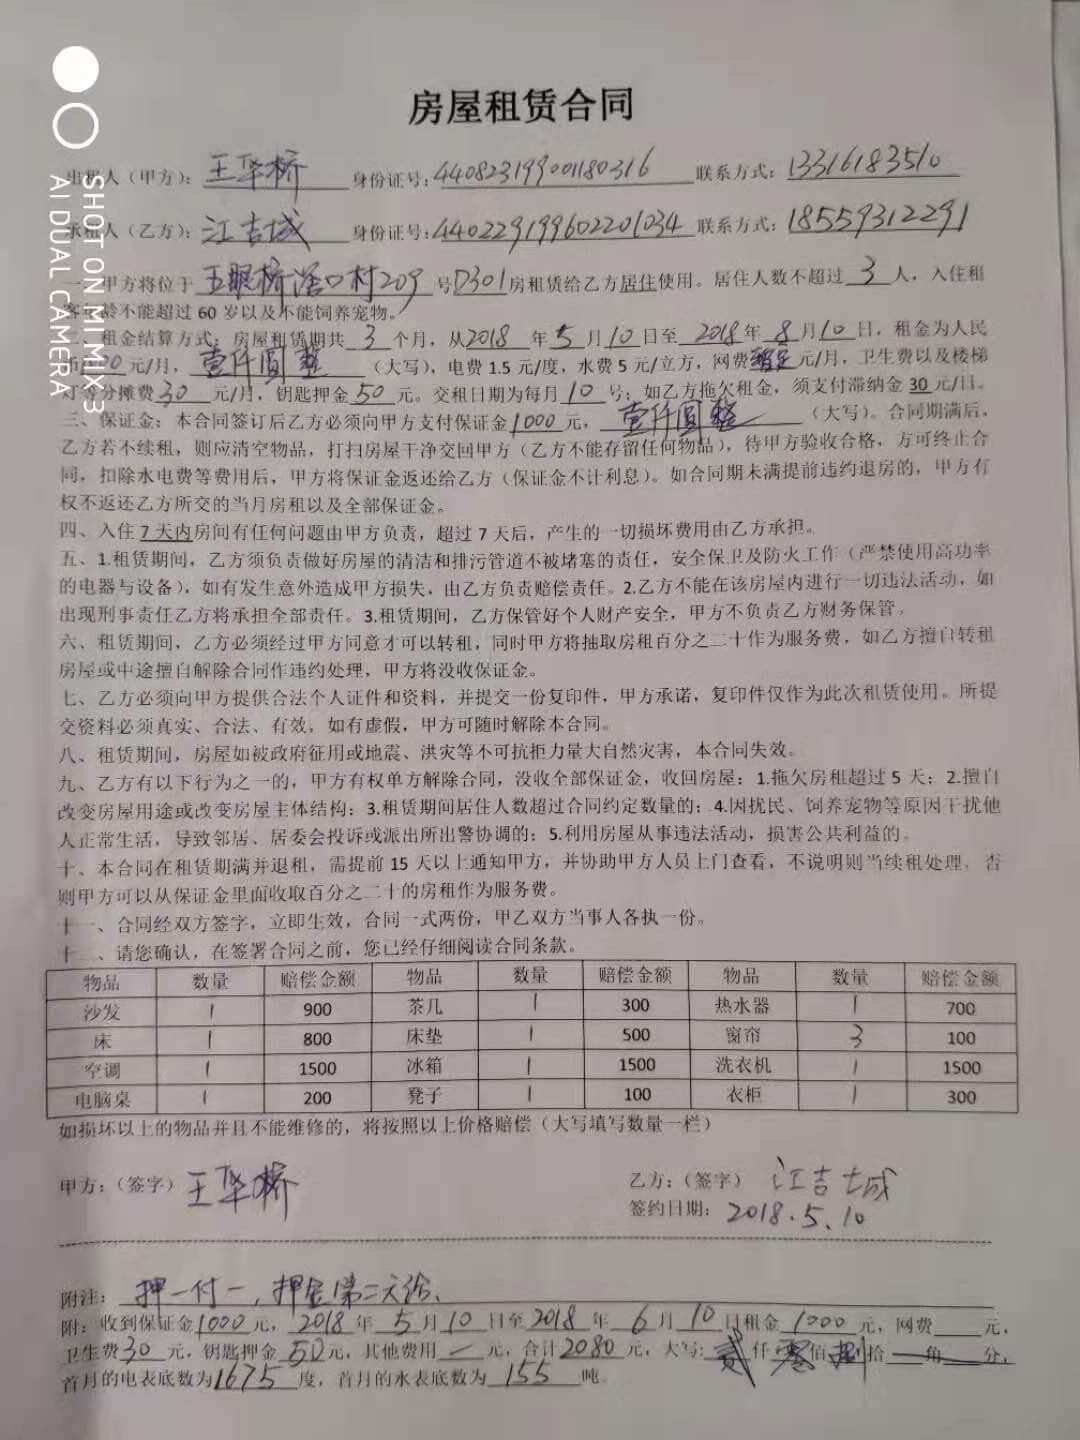 房屋租赁合同
出租人（甲方）：王华桥 身份证号：440823199001180316 联系方式：13316183510
承租人（乙方）：江吉城 身份证号：440229199602201034 联系方式：18559312291
一、甲方将位于 五眼桥滘口村209 号D301房租赁给乙方居住使用。居住人数不超过 3 人，入住租
客年龄不能超过 60 岁以及不能饲养宠物。
二、租金结算方式：房屋租赁期共 3 个月，从2018 年 5 月 10 日至 2018 年 8 月 10 日，租金为人民
元/月，壹仟圆整（大写），电费 1.5 元/度，水费 5 元/立方，网费 元/月，卫生费以及楼梯
灯等分摊费 30 元/月，钥匙押金 50 元。交租日期为每月 10 号；如乙方拖欠租金，须支付滞纳金 30 元/日。
三、保证金：本合同签订后乙方必须向甲方支付保证金 1000 元，壹仟圆整（大写）。合同期满后，
乙方若不续租，则应清空物品，打扫房屋干净交回甲方（乙方不能存留任何物品），待甲方验收合格，方可终止合
同，扣除水电费等费用后，甲方将保证金返还给乙方（保证金不计利息）。如合同期未满提前违约退房的，甲方有
权不返还乙方所交的当月房租以及全部保证金。
四、入住 7 天内房间有任何问题由甲方负责，超过 7 天后，产生的一切损坏费用由乙方承担。
五、1.租赁期间，乙方须负责做好房屋的清洁和排污管道不被堵塞的责任，安全保卫及防火工作（严禁使用高功率
的电器与设备），如有发生意外造成甲方损失，由乙方负责赔偿责任。2.乙方不能在该房屋内进行一切违法活动，如
出现刑事责任乙方将承担全部责任。3.租赁期间，乙方保管好个人财产安全，甲方不负责乙方财务保管。
六、租赁期间，乙方必须经过甲方同意才可以转租，同时甲方将抽取房租百分之二十作为服务费，如乙方擅自转租
房屋或中途擅自解除合同作违约处理，甲方将没收保证金。
七、乙方必须向甲方提供合法个人证件和资料，并提交一份复印件，甲方承诺，复印件仅作为此次租赁使用。所提
交资料必须真实、合法、有效，如有虚假，甲方可随时解除本合同。
八、租赁期间，房屋如被政府征用或地震、洪灾等不可抗拒力量大自然灾害，本合同失效。
九、乙方有以下行为之一的，甲方有权单方解除合同，没收全部保证金，收回房屋：1.拖欠房租超过 5 天；2.擅自
改变房屋用途或改变房屋主体结构；3.租赁期间居住人数超过合同约定数量的；4.因扰民、饲养宠物等原因干扰他
人正常生活，导致邻居、居委会投诉或派出所出警协调的；5.利用房屋从事违法活动，损害公共利益的。
十、本合同在租赁期满并退租，需提前 15 天以上通知甲方，并协助甲方人员上门查看，不说明则当续租处理。否
则甲方可以从保证金里面收取百分之二十的房租作为服务费。
十一、合同经双方签字，立即生效，合同一式两份，甲乙双方当事人各执一份。
十二、请您确认，在签署合同之前，您已经仔细阅读合同条款。
物品 数量 赔偿金额 物品 数量 赔偿金额 物品 数量 赔偿金额
沙发 1 900 茶几 1 300 热水器 1 700
床 1 800 床垫 1 500 窗帘 3 100
空调 1 1500 冰箱 1 1500 洗衣机 1 1500
电脑桌 1 200 凳子 1 100 衣柜 1 300
如损坏以上的物品并且不能维修的，将按照以上价格赔偿（大写填写数量一栏）
甲方：（签字）王华桥 乙方：（签字）江吉城
签约日期：2018.5.10
附注：押一付一，押金第二天给。
附：收到保证金 1000 元，2018 年 5 月 10 日至 2018 年 6 月 10 日租金 1000 元，网费 元，
卫生费 30 元，钥匙押金 50 元，其他费用 一 元，合计 2080 元，大写：贰 仟 零 佰 捌 拾 角 分，
首月的电表底数为 1675 度，首月的水表底数为 155 吨。
SHOT ON MI MIX 3
AI DUAL CAMERA